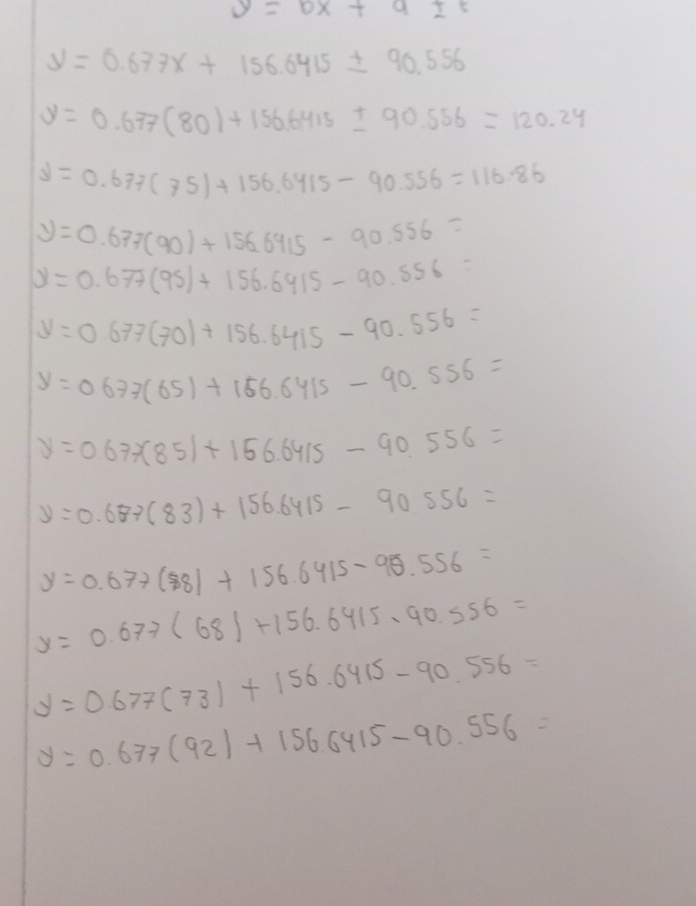 y = bx + a ± t
y = 0.677x + 156.6415 ± 90.556
y = 0.677(80) + 156.6415 ± 90.556 = 120.24
y = 0.677(75) + 156.6415 - 90.556 = 116.86
y = 0.677(90) + 156.6415 - 90.556 =
y = 0.677(95) + 156.6415 - 90.556 =
y = 0.677(70) + 156.6415 - 90.556 =
y = 0.677(65) + 156.6415 - 90.556 =
y = 0.677(85) + 156.6415 - 90.556 =
y = 0.677(83) + 156.6415 - 90 556 =
y = 0.677(88) + 156.6415 - 90.556 =
y = 0.677(68) + 156.6415 - 90.556 =
y = 0.677(73) + 156.6415 - 90.556 =
y = 0.677(92) + 156.6415 - 90.556 =